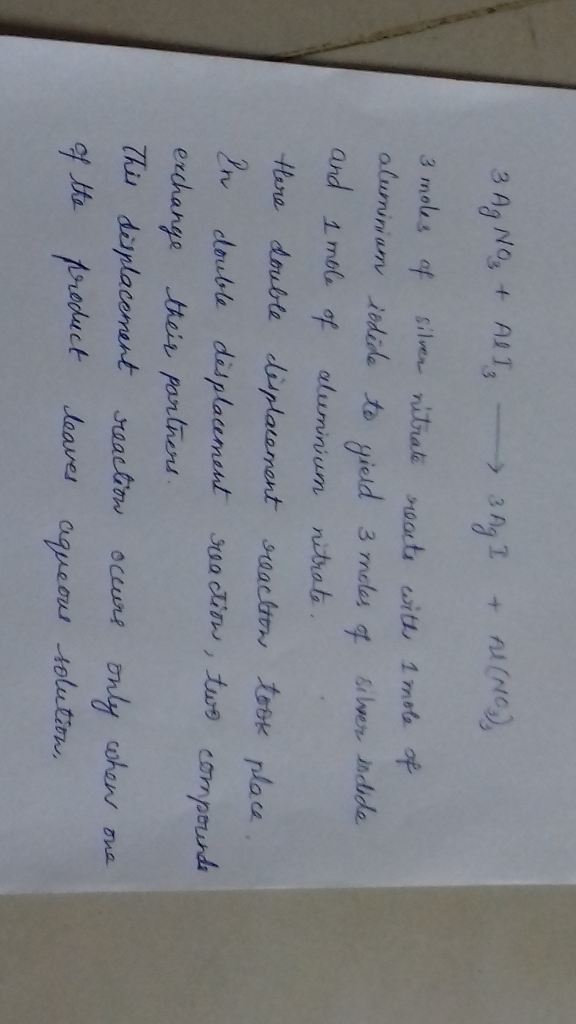 3AgNO3 + AlI3 ⟶ 3AgI + Al(NO3)3
3 moles of silver nitrate reacts with 1 mole of
aluminium iodide to yield 3 moles of silver iodide
and 1 mole of aluminium nitrate.
Here double displacement reaction took place.
In double displacement reaction, two compounds
exchange their partners.
This displacement reaction occurs only when one
of the product leaves aqueous solution.